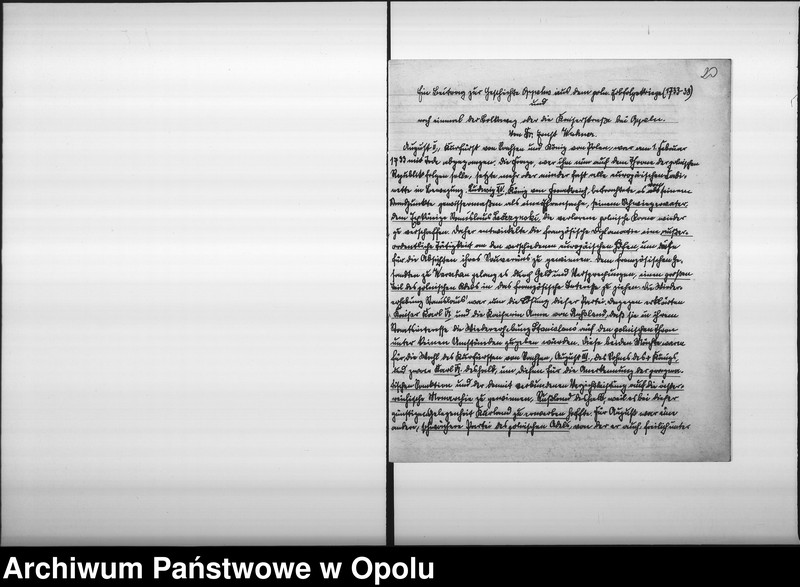 20
Ein Beitrag zur Geschichte Oppelns aus dem poln. Erbfolgekriege (1733-38)
und
noch einmal der Volksweg oder die Kaiserstraße bei Oppeln.
Von Dr. Ernst
August II., Kurfürst von Sachsen und König von Polen, war am 1. Februar
1733 mit Tode abgegangen. Die Frage, wer ihm nun auf dem Throne der polnischen
Republik folgen solle, setzte mehr oder minder fast alle europäischen Kabi-
nette in Bewegung. Ludwig XV., König von Frankreich, betrachtete es von seinem
Standpunkte gewissermaßen als eine Ehrensache, seinem Schwiegervater,
dem Exkönige Stanislaus Leszczynski, die verlorene polnische Krone wieder
zu verschaffen. Daher entwickelte die französische Diplomatie eine außer-
ordentliche Tätigkeit an den verschiedenen europäischen Höfen, um diese
für die Absichten ihres Souveräns zu gewinnen. Dem französischen Ge-
sandten zu Warschau gelang es durch Geld und Versprechungen, einen großen
Teil des polnischen Adels in das französische Interesse zu ziehen. Die Wieder-
erhebung Stanislaus' war nun die Losung dieser Partei. Dagegen erklärten
Kaiser Karl VI. und die Kaiserin Anna von Rußland, daß sie in ihrem
Staatsinteresse die Wiedererhebung Stanislaus' auf den polnischen Thron
unter keinen Umständen zugeben würden. Diese beiden Mächte waren
für die Wahl des Kurfürsten von Sachsen, August III., des Sohnes des Königs.
Und zwar Karl VI. deshalb, um diesen für die Anerkennung der pragma-
tischen Sanktion und der damit verbundenen Verzichtleistung auf die öster-
reichische Monarchie zu gewinnen, Rußland deshalb, weil es bei dieser
günstigen Gelegenheit Kurland zu erwerben hoffte. Für August war eine
andere, schwächere Partei des polnischen Adels, von der er auch freilich unter
Archiwum Państwowe w Opolu